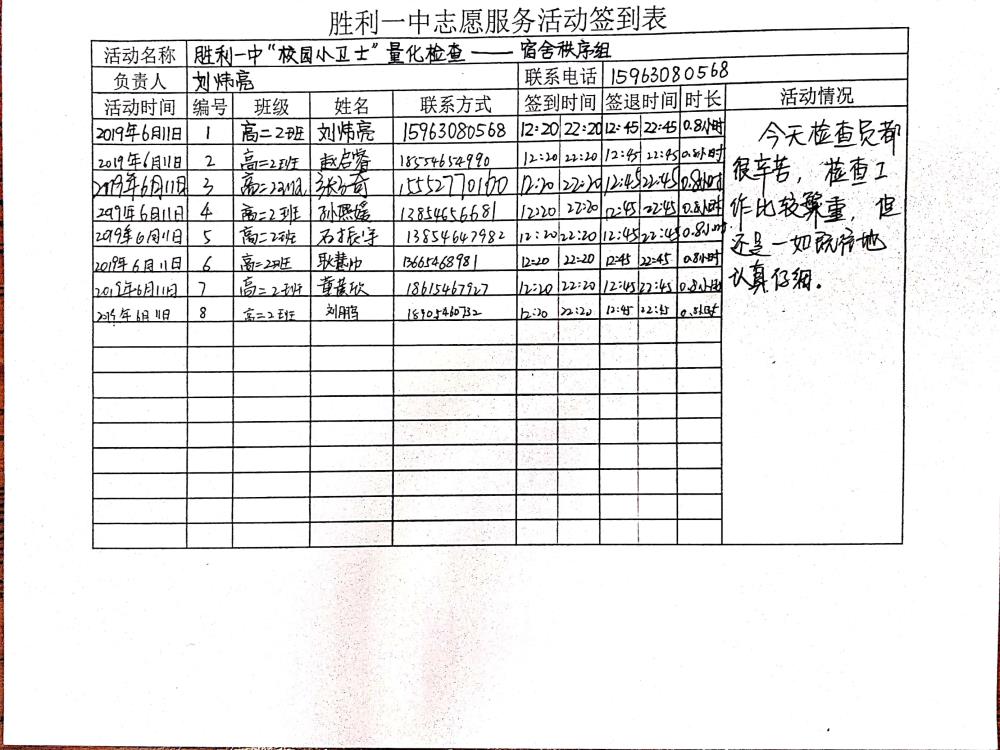 胜利一中志愿服务活动签到表
活动名称 胜利一中“校园小卫士”量化检查——宿舍秩序组
负责人 刘炜亮 联系电话 15963080568
活动时间 编号 班级 姓名 联系方式 签到时间 签退时间 时长 活动情况
2019年6月11日 1 高二2班 刘炜亮 15963080568 12:20 22:20 12:45 22:45 0.8小时
2019年6月11日 2 高二2班 赵启睿 18554654990 12:20 22:20 12:45 22:45 0.8小时
2019年6月11日 3 高二2班 15552770170 12:20 22:20 12:45 22:45 0.8小时
2019年6月11日 4 高二2班 孙熙媛 13854656681 12:20 22:20 12:45 22:45 0.8小时
2019年6月11日 5 高二2班 石振宇 13854647982 12:20 22:20 12:45 22:45 0.8小时
2019年6月11日 6 高二2班 13665468981 12:20 22:20 12:45 22:45 0.8小时
2019年6月11日 7 高二2班 18615467927 12:20 22:20 12:45 22:45 0.8小时
2019年6月11日 8 高二2班 刘鹏 18905460732 12:20 22:20 12:45 22:45 0.8小时
今天检查员都
很辛苦，检查工
作比较繁重，但
还是一如既往地
认真仔细。